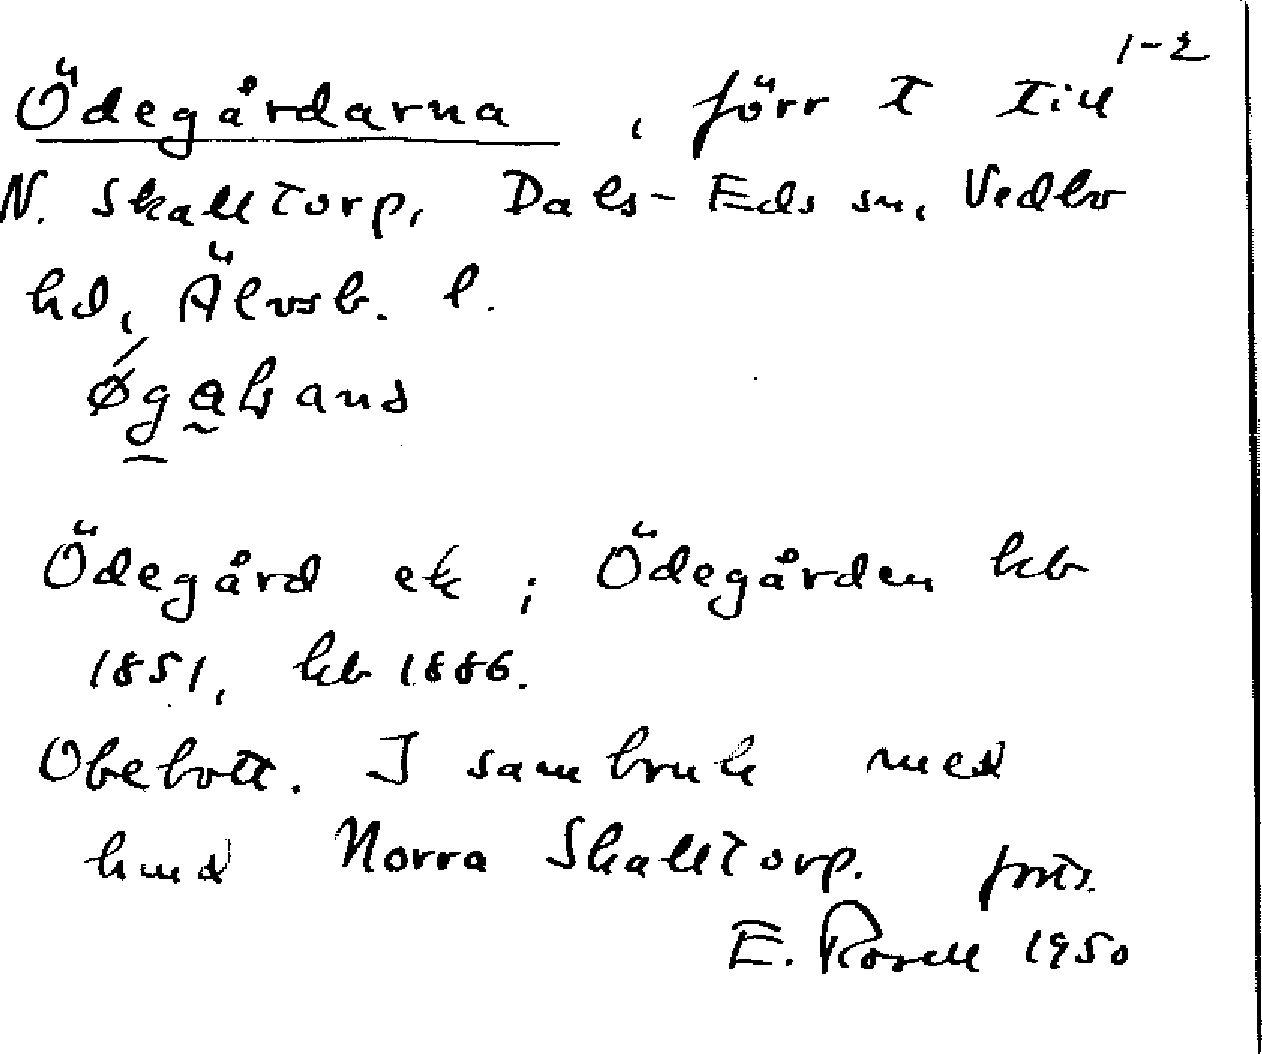 1-2
Ödegårdarna, förr T till
N. Skalltorp, Dals-Eds sn, Vedbo
hd, Älvsb. l.
Ödegård ek; Ödegården kb
1851, kb 1886.
Obebott. I sambruk med
hmd Norra Skalltorp. forts.
E. Rosell 1950